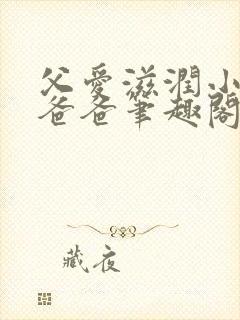 父愛滋潤小
爸爸筆趣閣
藏夜